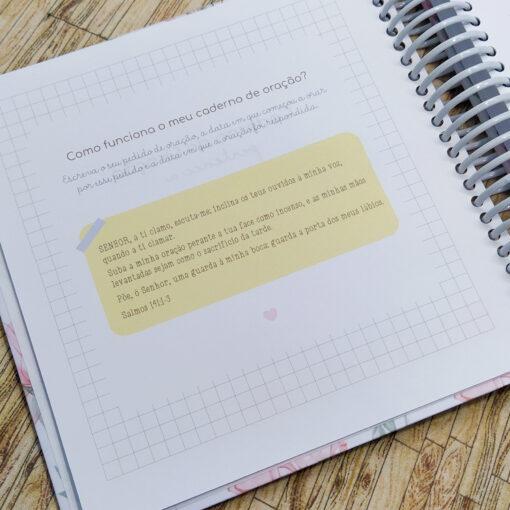 Como funciona o meu caderno de oração?
Escreva o seu pedido de oração, a data em que começou a orar
por esse pedido e a data em que a oração foi respondida.
SENHOR, a ti clamo, escuta-me; inclina os teus ouvidos à minha voz,
quando a ti clamar.
Suba a minha oração perante a tua face como incenso, e as minhas mãos
levantadas sejam como o sacrifício da tarde.
Põe, ó Senhor, uma guarda à minha boca; guarda a porta dos meus lábios.
Salmos 141:1-3